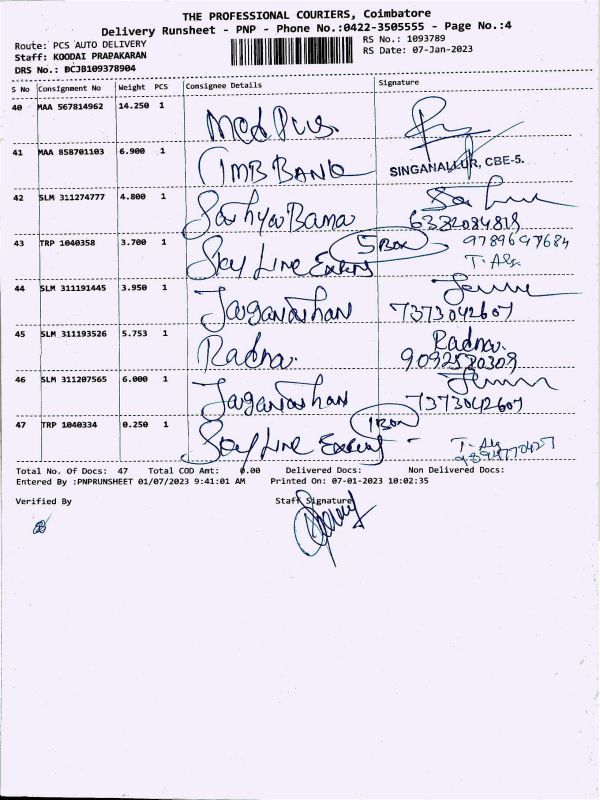 THE PROFESSIONAL COURIERS, Coimbatore
Delivery Runsheet - PNP - Phone No.:0422-3505555 - Page No.:4
Route: PCS AUTO DELIVERY
RS No.: 1093789
Staff: KOODAI PRAPAKARAN
RS Date: 07-Jan-2023
DRS No.: DCJB109378904
S No Consignment No Weight PCS Consignee Details Signature
40 MAA 567814962 14.250 1 Med Plus
41 MAA 858701103 6.900 1 TMB BANK SINGANALLUR, CBE-5.
42 SLM 311274777 4.800 1 Sathya Bama
43 TRP 1040358 3.700 1 Sky Line 5 Box 9789697684
44 SLM 311191445 3.950 1 Jaganathan 7373042607
45 SLM 311193526 5.753 1 Radna. Radna. 9092580309
46 SLM 311207565 6.000 1 Jaganathan 7373042607
47 TRP 1040334 0.250 1 Sky Line 1 Box
Total No. Of Docs: 47 Total COD Amt: 0.00 Delivered Docs: Non Delivered Docs:
Entered By :PNPRUNSHEET 01/07/2023 9:41:01 AM Printed On: 07-01-2023 10:02:35
Verified By Staff Signature